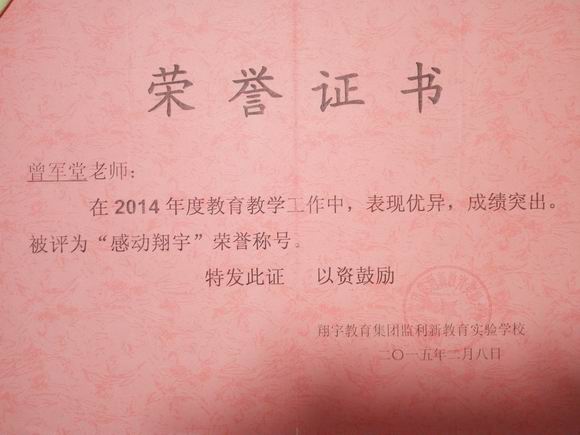 荣誉证书
曾军堂老师：
在2014年度教育教学工作中，表现优异，成绩突出。
被评为“感动翔宇”荣誉称号。
特发此证 以资鼓励
翔宇教育集团监利新教育实验学校
二〇一五年二月八日